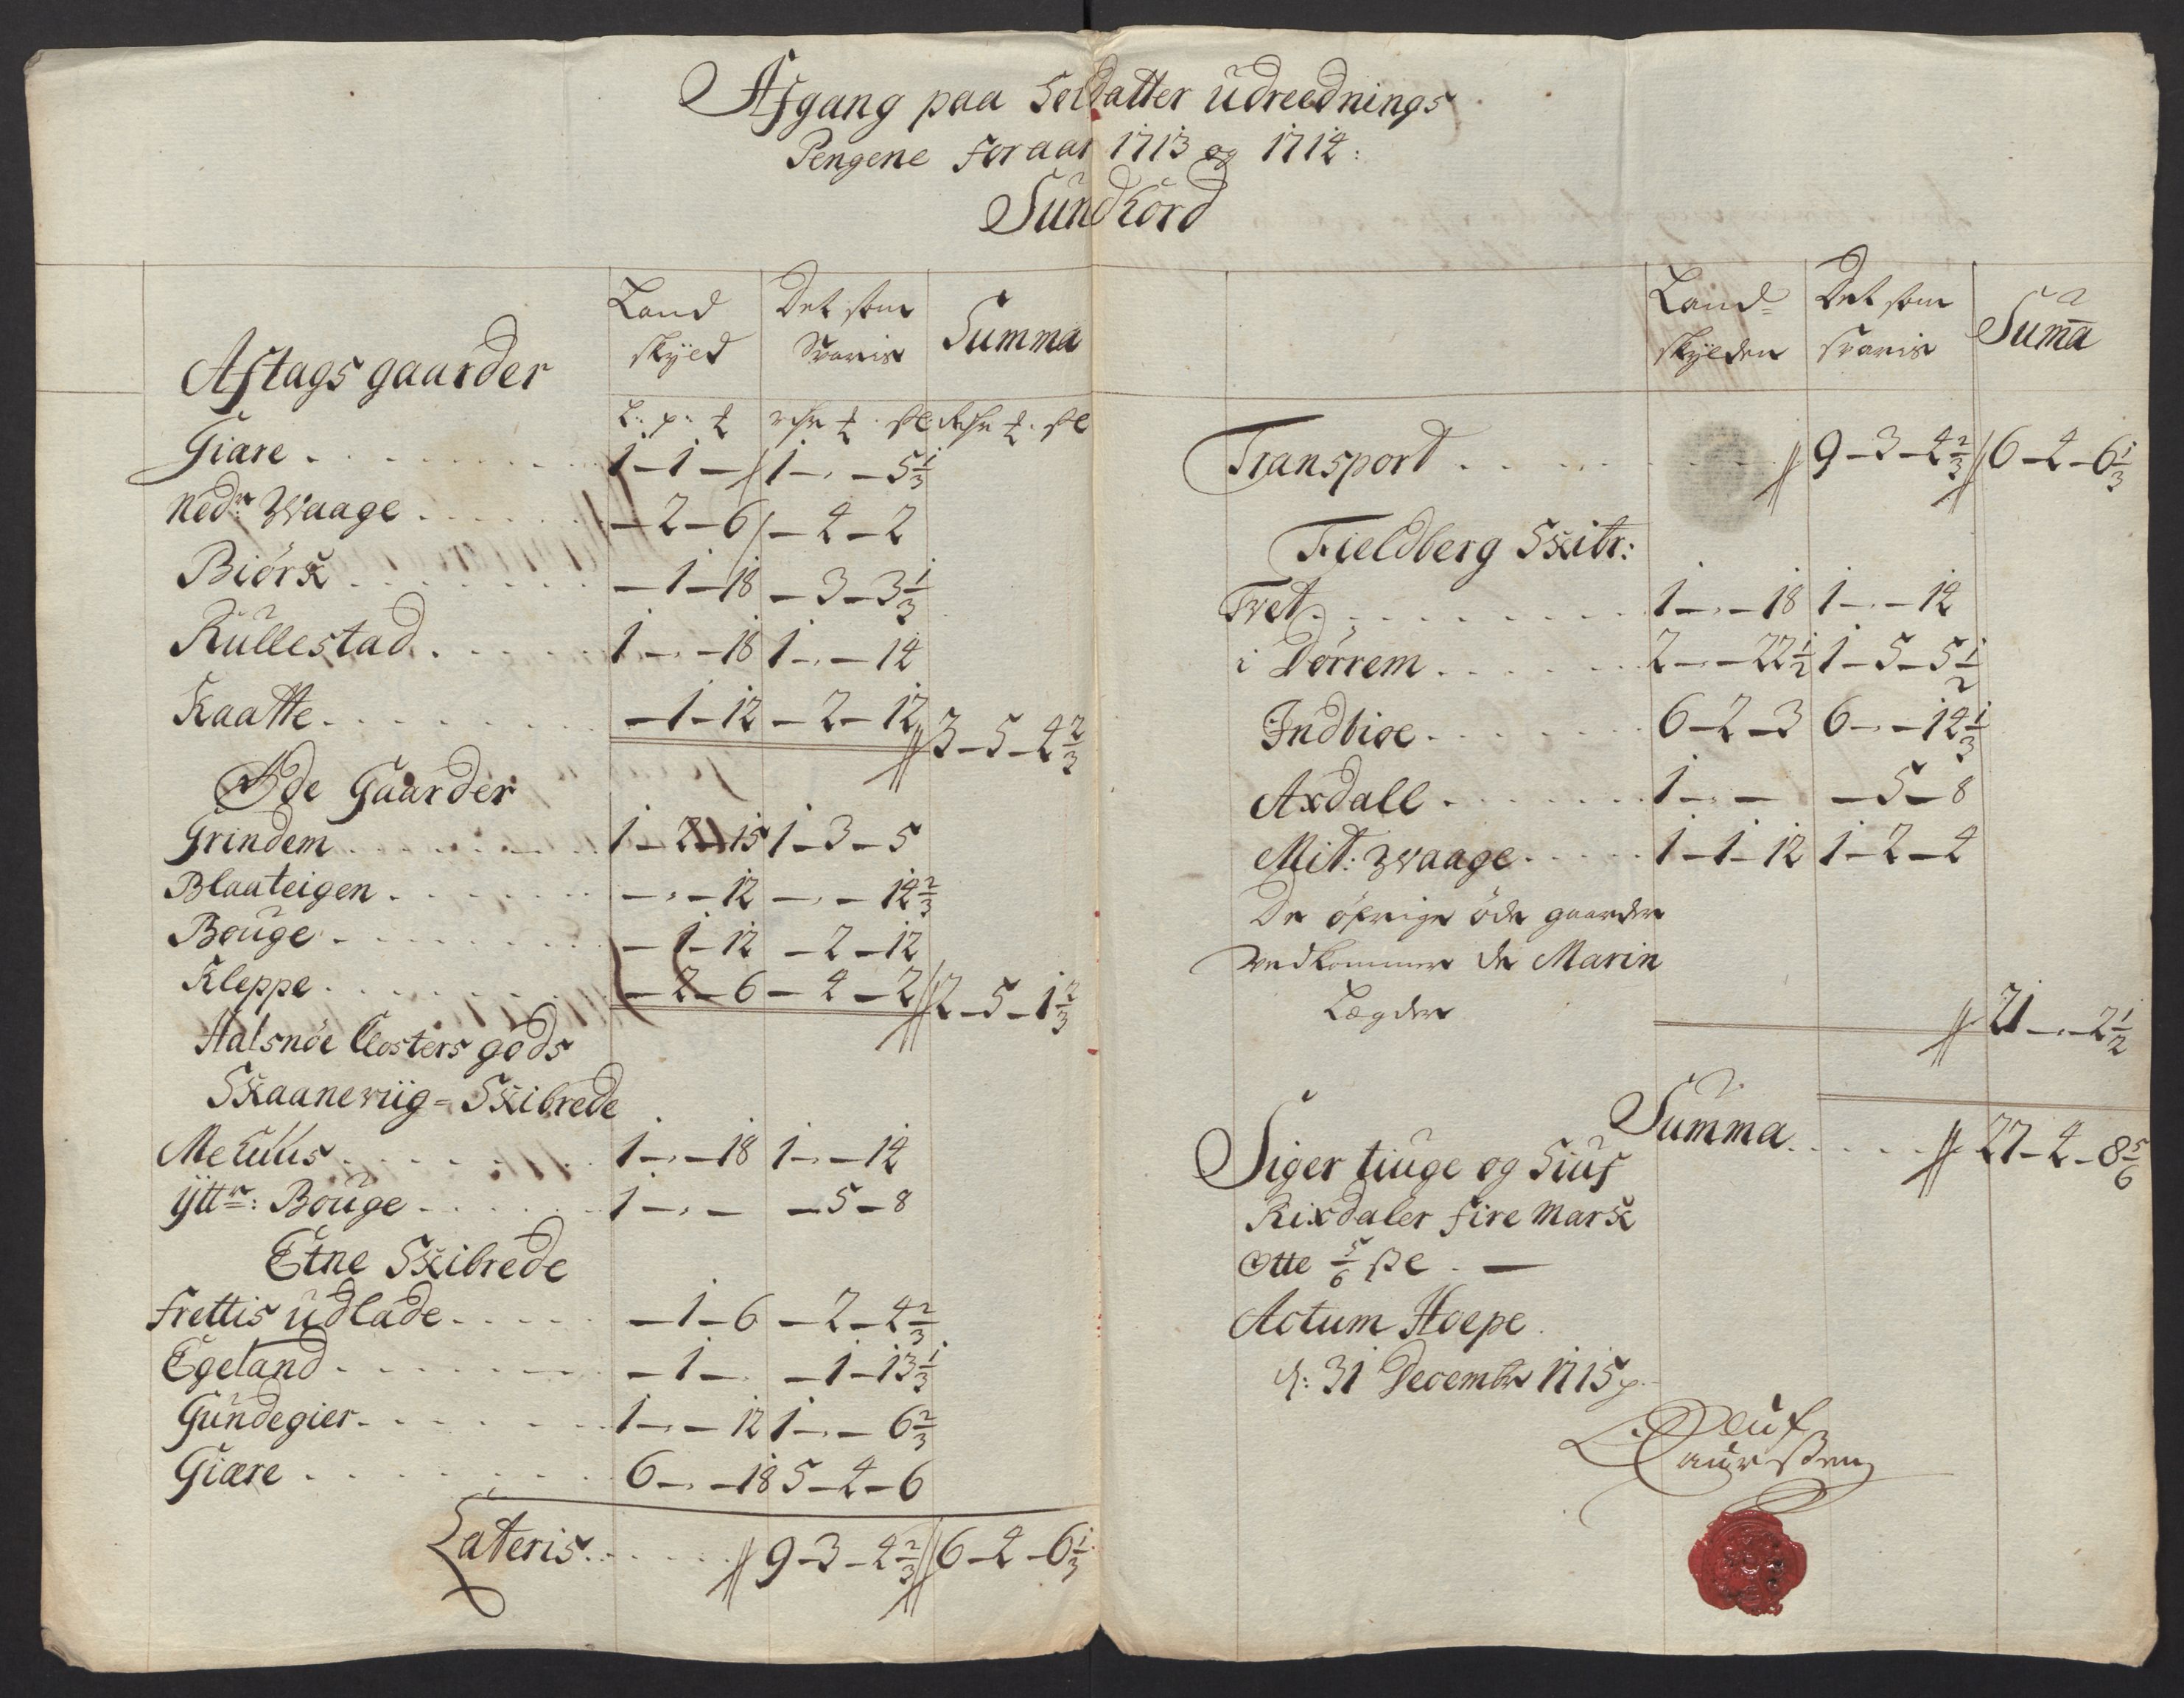 Afgang paa Soldatter udreednings
Pengene for aar 1713 og 1714:
Sundhord
Aftags gaarder
Land skyld
Det som Svaris
Summa
L: p: ℔ rdr ℔ sk Rdr ℔ sk
Giare . . . 1 - 1 - // 1 - „ - 5 1/3
Nedr: Waage . . . - 2 - 6 / - 4 - 2
Biørk . . . - 1 - 18 - 3 - 3 1/3
Kullestad . . . 1 - „ - 18 1 - „ - 14
Kaatte . . . - 1 - 12 - 2 - 12 // 3 - 5 - 4 2/3
Øde Gaarder
Grindem . . . 1 - 2 - 15 1 - 3 - 5
Blaateigen . . . - „ - 12 - „ - 14 2/3
Bouge . . . - 1 - 12 - 2 - 12
Kleppe . . . - 2 - 6 - 4 - 2 // 2 - 5 - 1 2/3
Halsnøe Closters gods
Skaaneviig = Skibrede
Mehuus . . . 1 - „ - 18 1 - „ - 14
ytt: Bouge . . . 1 - „ - - 5 - 8
Etne Skibrede
Frettis udlade . . . - 1 - 6 - 2 - 4 2/3
Egeland . . . - 1 - „ - 1 - 13 1/3
Gundegier . . . 1 - „ - 12 1 - „ - 6 2/3
Giære . . . 6 - „ - 18 5 - 4 - 6
Lateris . . . // 9 - 3 - 4 2/3 // 6 - 4 - 6 1/3
Land= skylden
Det som svaris
Suma
Transport . . . // 9 - 3 - 4 2/3 // 6 - 4 - 6 1/3
Fieldberg Skibr:
Tvet . . . 1 - „ - 18 1 - „ - 14
i Dørrem . . . 2 - „ - 22 1/2 1 - 5 - 5 1/2
Indbiøe . . . 6 - 2 - 3 6 - „ - 14 1/3
Axdall . . . 1 - „ - - 5 - 8
Mit: Waage . . . 1 - 1 - 12 1 - 2 - 4
De øfrige øde gaarder
vedkommer de Marin
Lægder
// 21 - „ - 2 1/2
Summa . . . // 27 - 4 - 8 5/6
Siger tiuge og Siuf
Rixdaler fire Mark
Otte 5/6 sk . —
Actum Hoepe .
d: 31 Decembr 1715
Oluf
Laurssen